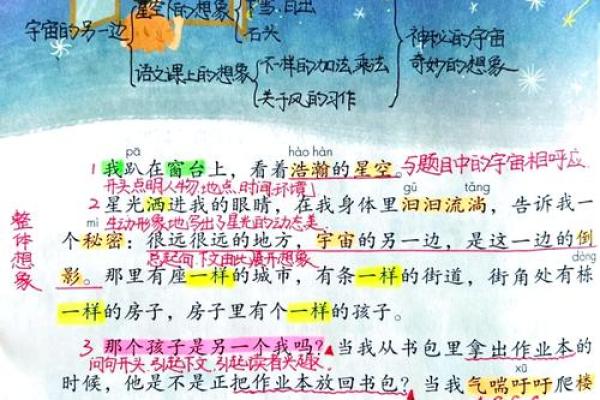 星空下的想象
下雪、日出
石头
宇宙的另一边
语文课上的想象
不一样的加法、乘法
关于风的习作
神秘的宇宙
奇妙的想象
pā
hào hàn
1 我趴在窗台上，看着浩瀚的星空。与题目中的宇宙相呼应
开头点明人物、地点、时间、环境
gǔ tǎng
2 星光洒进我的眼睛，在我身体里汩汩流淌，告诉我一
mì
生动形象地写出了星光的动态美
个秘密：很远很远的地方，宇宙的另一边，是这一边的倒
总起句，下文由此展开想象
dòng
影。那里有座一样的城市，有条一样的街道，街角处有栋
一样的房子，房子里有个一样的孩子。
整体想象
3 那个孩子是另一个我吗？当我从书包里拿出作业本的
问句开头，引起下文，引起读者兴趣
xū
时候，他是不是正把作业本放回书包？当我气喘吁吁爬楼